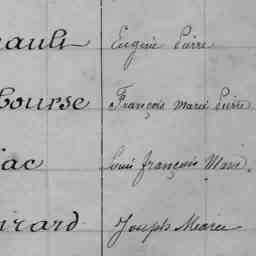 cault Eugène Pierre
course François marie Pierre
ac Louis françois Marie.
irard Joseph Marie